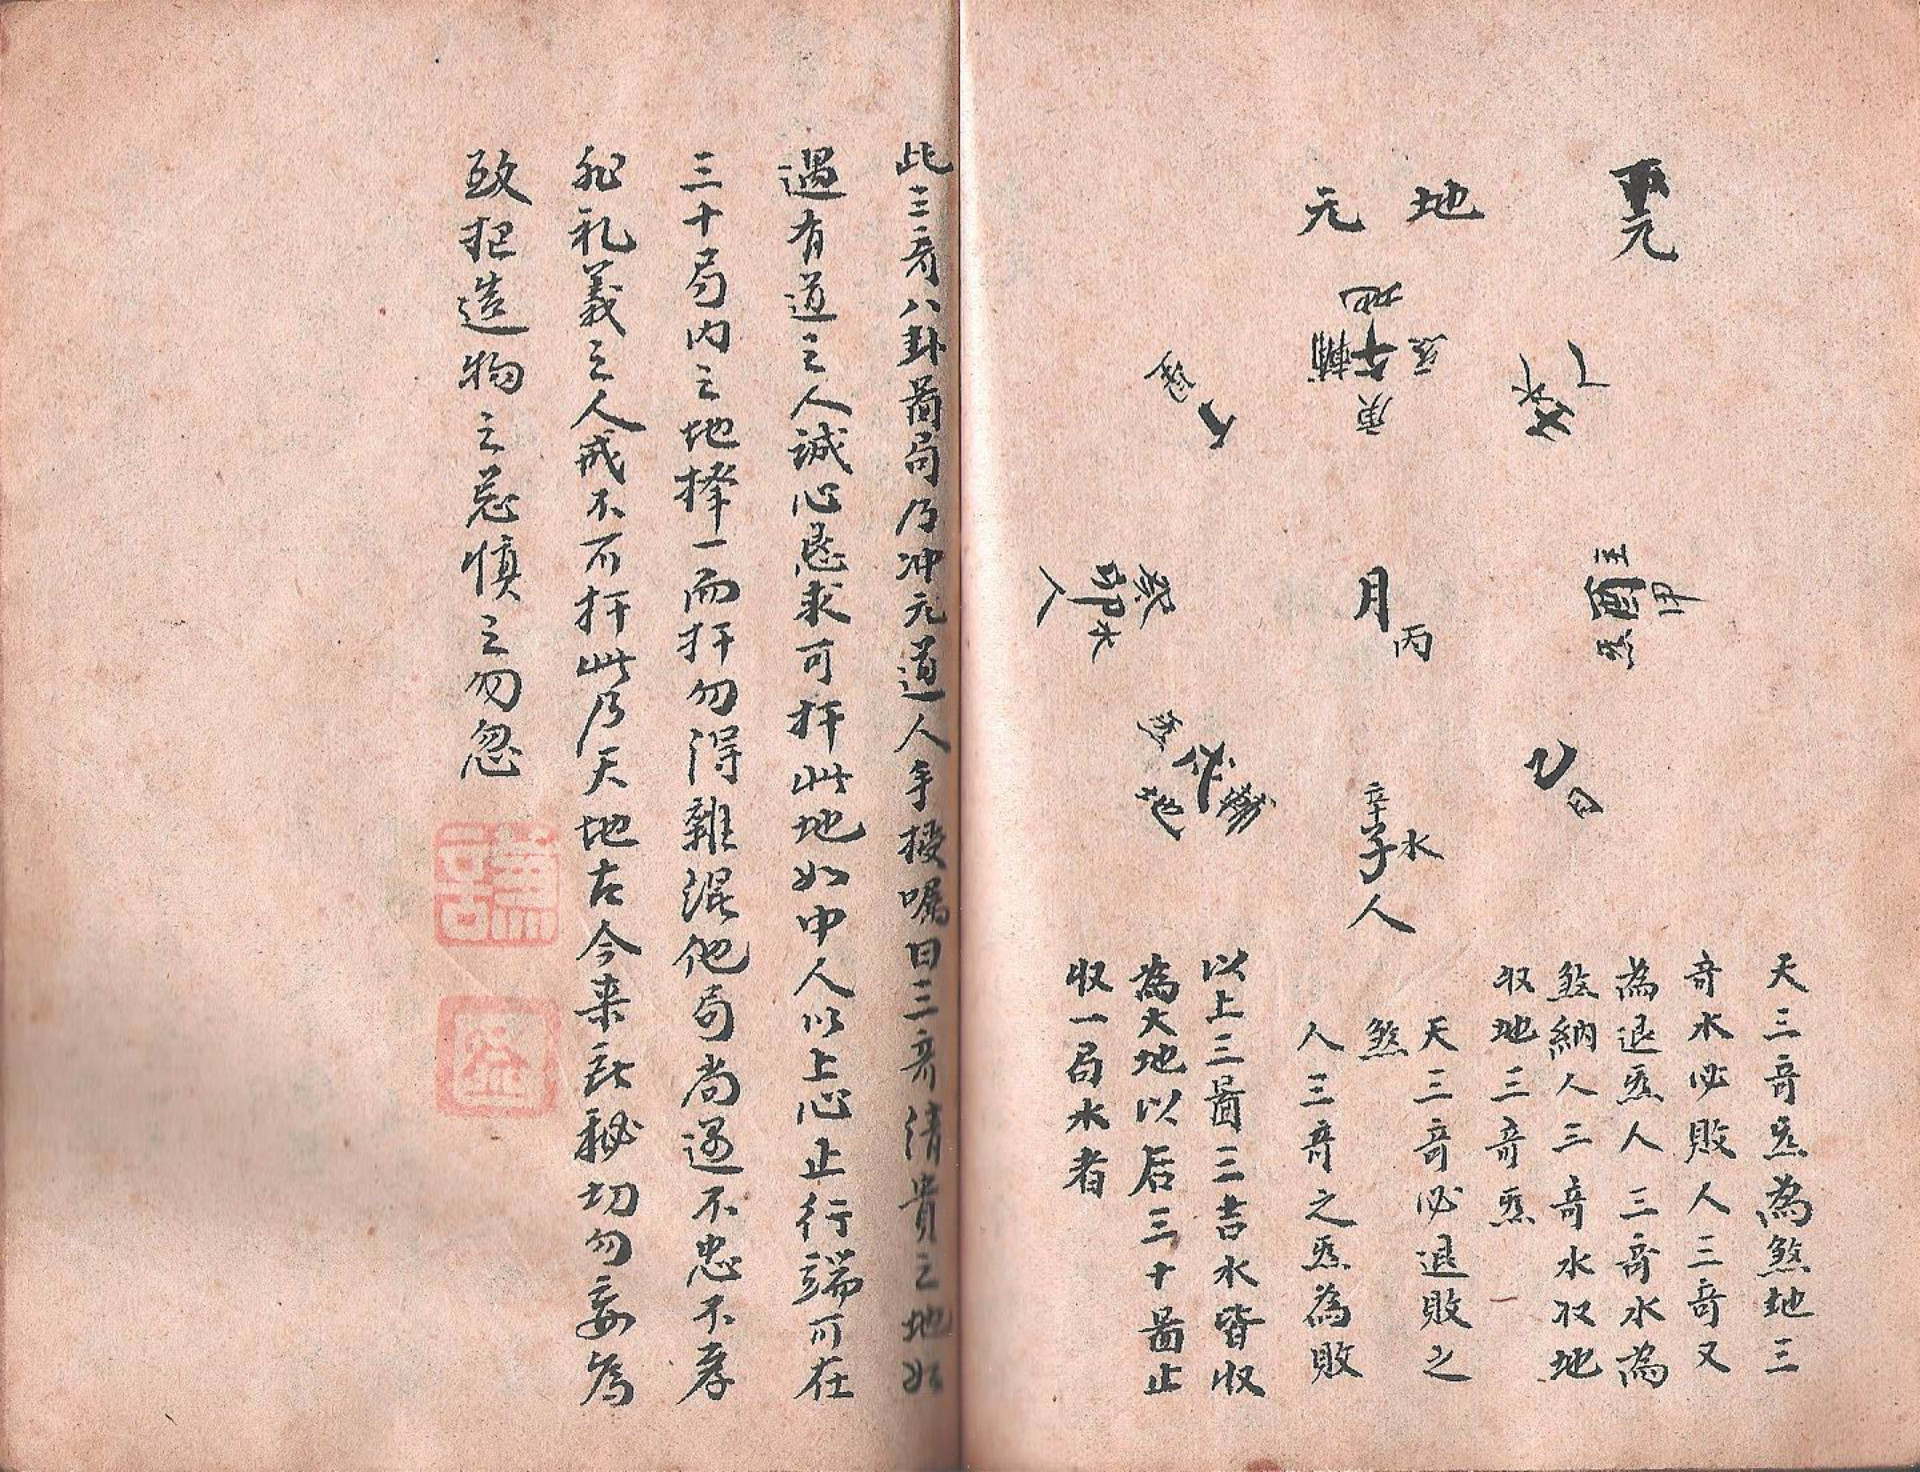 下元
地元
地
輔午炁
庚
月
丙
甲
乙
日
辛
子水
人
癸
卯水
人
地
天三奇炁為煞地三
奇水必敗人三奇又
為退炁人三奇水為
煞納人三奇水收地
收地三奇炁
天三奇必退敗之
煞
人三奇之炁為敗
以上三啚三吉水皆收
為大地以后三十啚止
收一局水者
此三奇八卦啚局乃冲元道人手授嘱曰三奇清貴之地如
遇有道之人誠心恳求可扦此地如中人以上心止行端可在
三十局内之地擇一而扦勿得雜混他局尚遇不忠不孝
非礼義之人戒不可扦此乃天地古今来秘切勿妄為
致犯造物之忌慎之勿忽